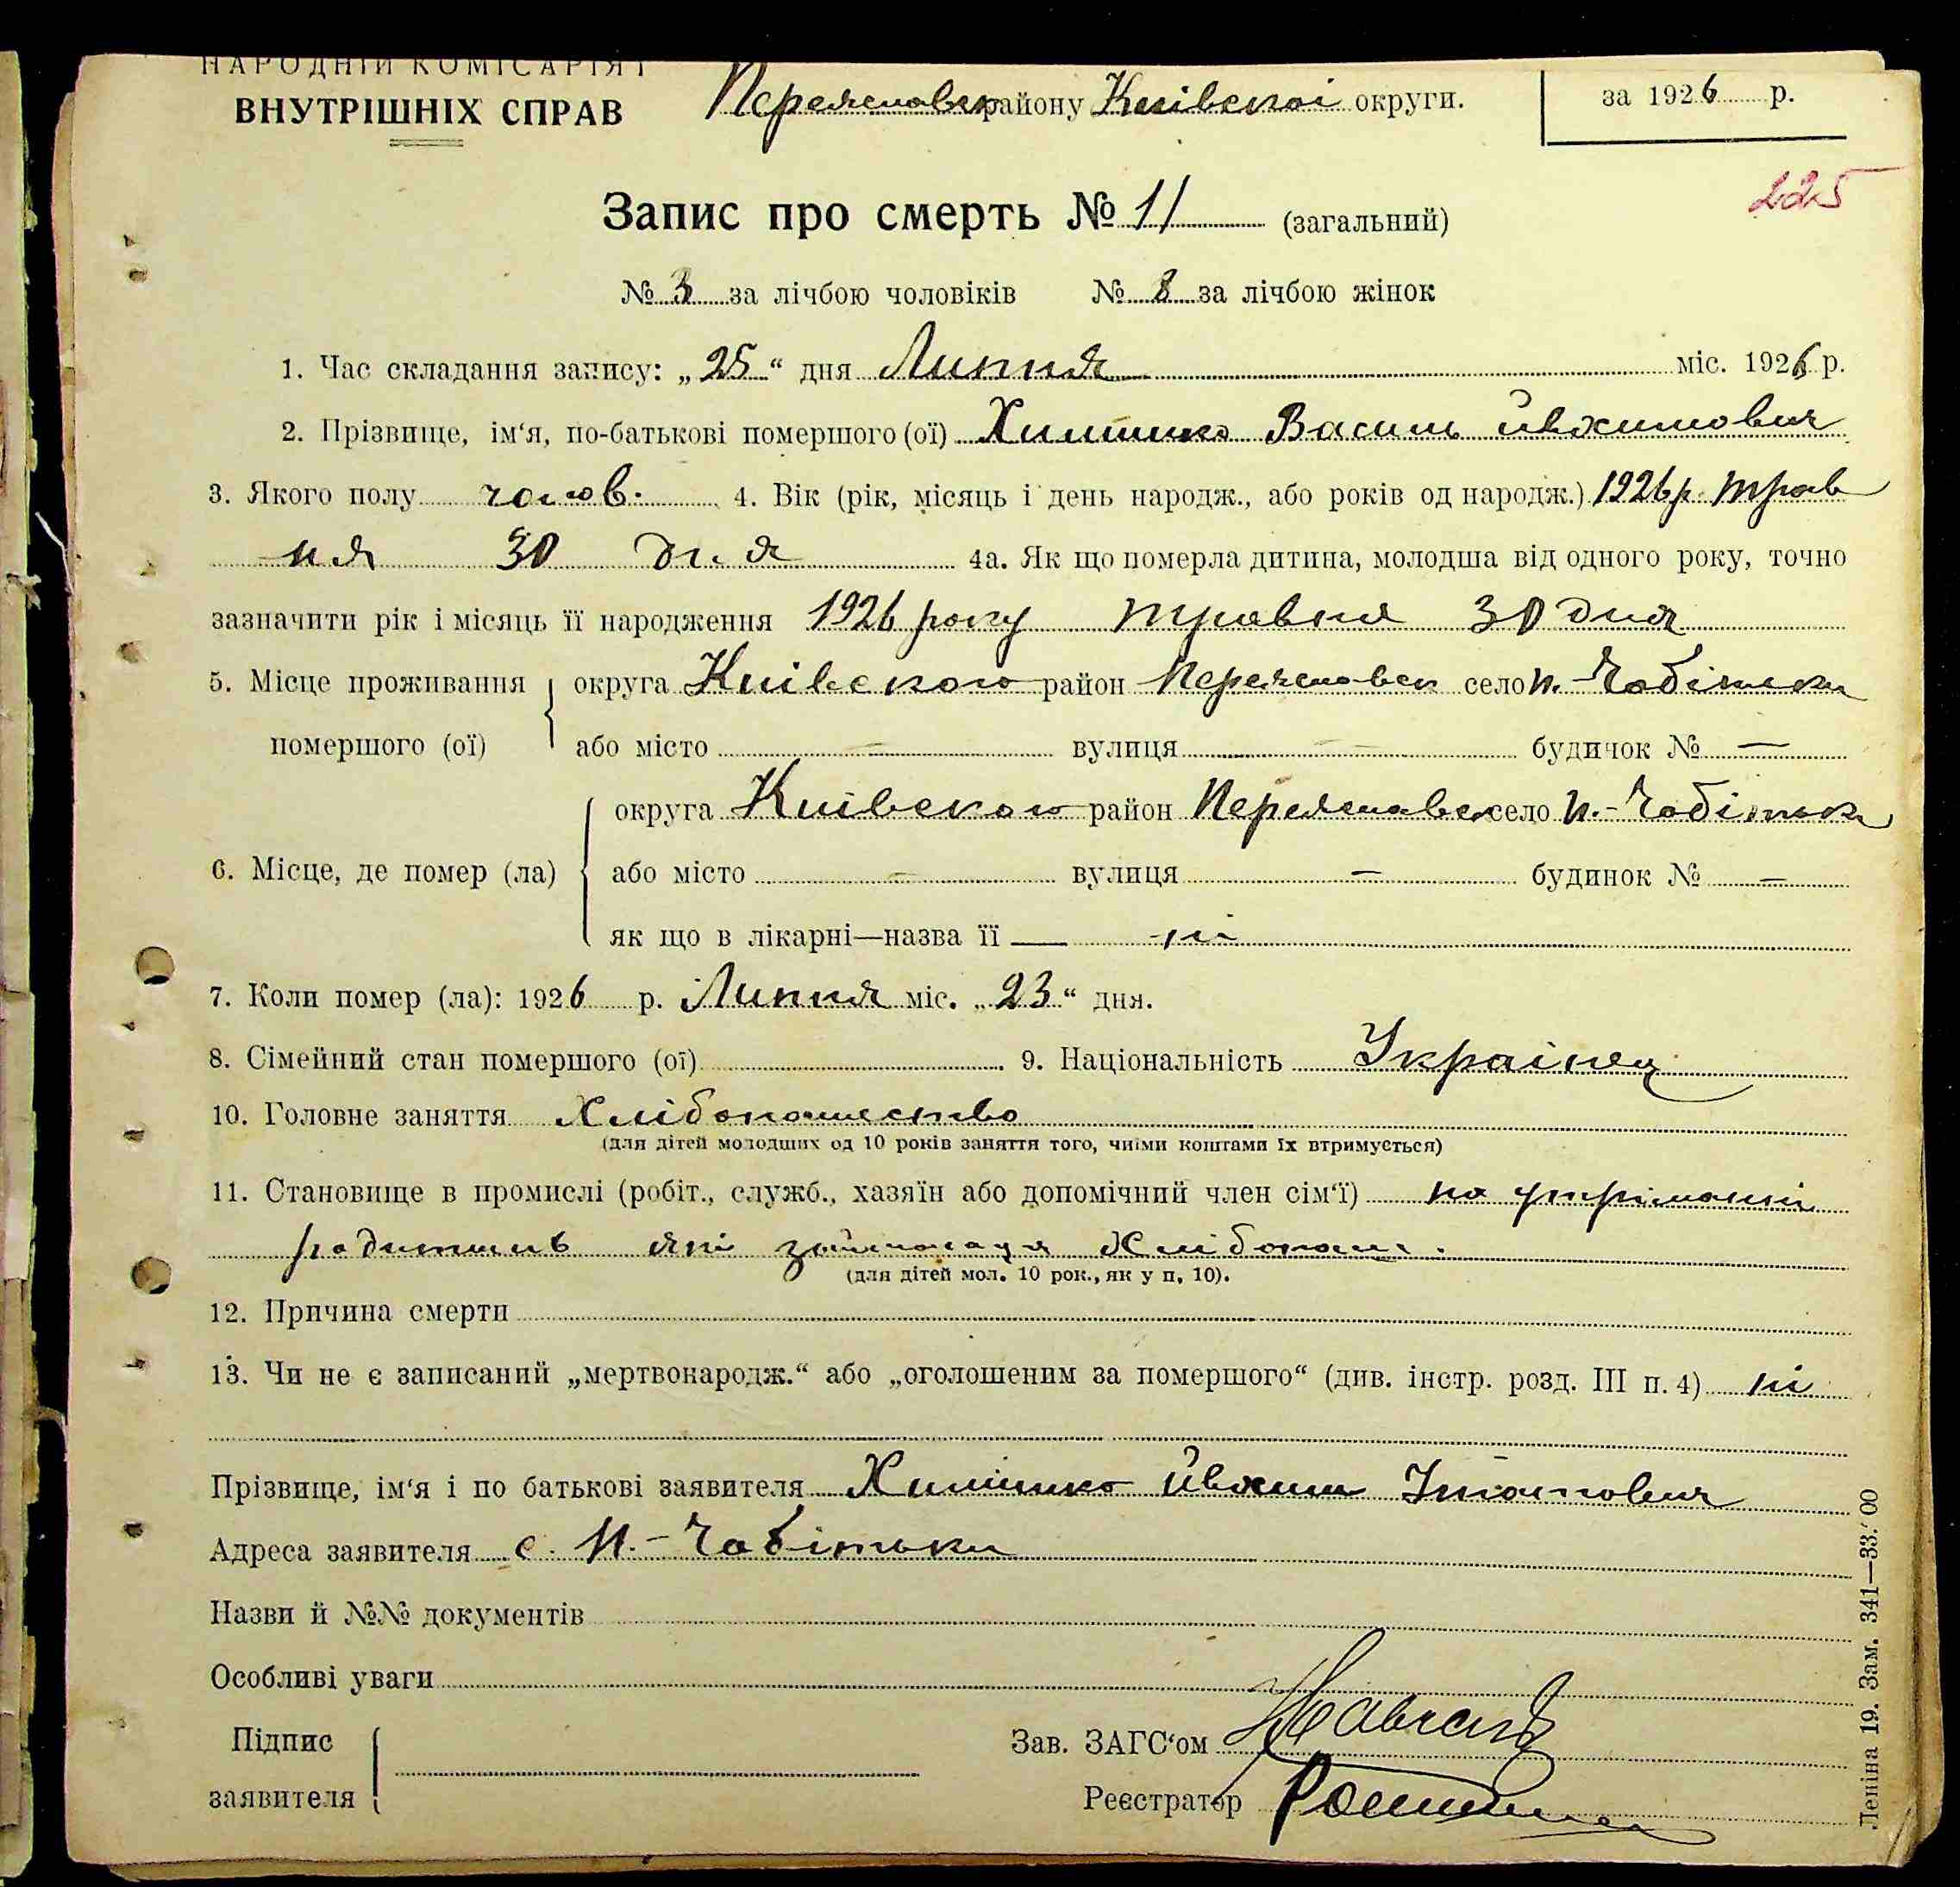 НАРОДНІЙ КОМІСАРІЯТ
ВНУТРІШНІХ СПРАВ
Переяславськ району Київської округи.
за 1926 р.
225
Запис про смерть № 11 (загальний)
№ 3 за лічбою чоловіків № 8 за лічбою жінок
1. Час складання запису: „25“ дня Липня міс. 1926 р.
2. Прізвище, ім‘я, по-батькові помершого (ої) Василь
3. Якого полу чолов. 4. Вік (рік, місяць і день народж., або років од народж.) 1926 р. трав
ня 30 дня 4а. Як що померла дитина, молодша від одного року, точно
зазначити рік і місяць її народження 1926 року травня 30 дня
5. Місце проживання помершого (ої) округа Київського район Переяславськ село п.-Чобітьки
або місто — вулиця — будинок № —
6. Місце, де помер (ла) округа Київського район Переяславськ село п.-Чобітьки
або місто — вулиця — будинок № —
як що в лікарні—назва її — ні
7. Коли помер (ла): 1926 р. Липня міс. „23“ дня.
8. Сімейний стан помершого (ої) 9. Національність Українец
10. Головне заняття Хлібопашество
(для дітей молодших од 10 років заняття того, чиїми коштами їх втримується)
11. Становище в промислі (робіт., служб., хазяїн або допомічний член сім‘ї) на утріманні
родителів які займаюця хлібопаш.
(для дітей мол. 10 рок., як у п. 10).
12. Причина смерти
13. Чи не є записаний „мертвонародж.“ або „оголошеним за помершого“ (див. інстр. розд. III п. 4) ні
Прізвище, ім‘я і по батькові заявителя
Адреса заявителя с. п.-Чобітьки
Назви й №№ документів
Особливі уваги
Підпис заявителя
Зав. ЗАГС‘ом
Реєстратор
Леніна 19. Зам. 341—33.